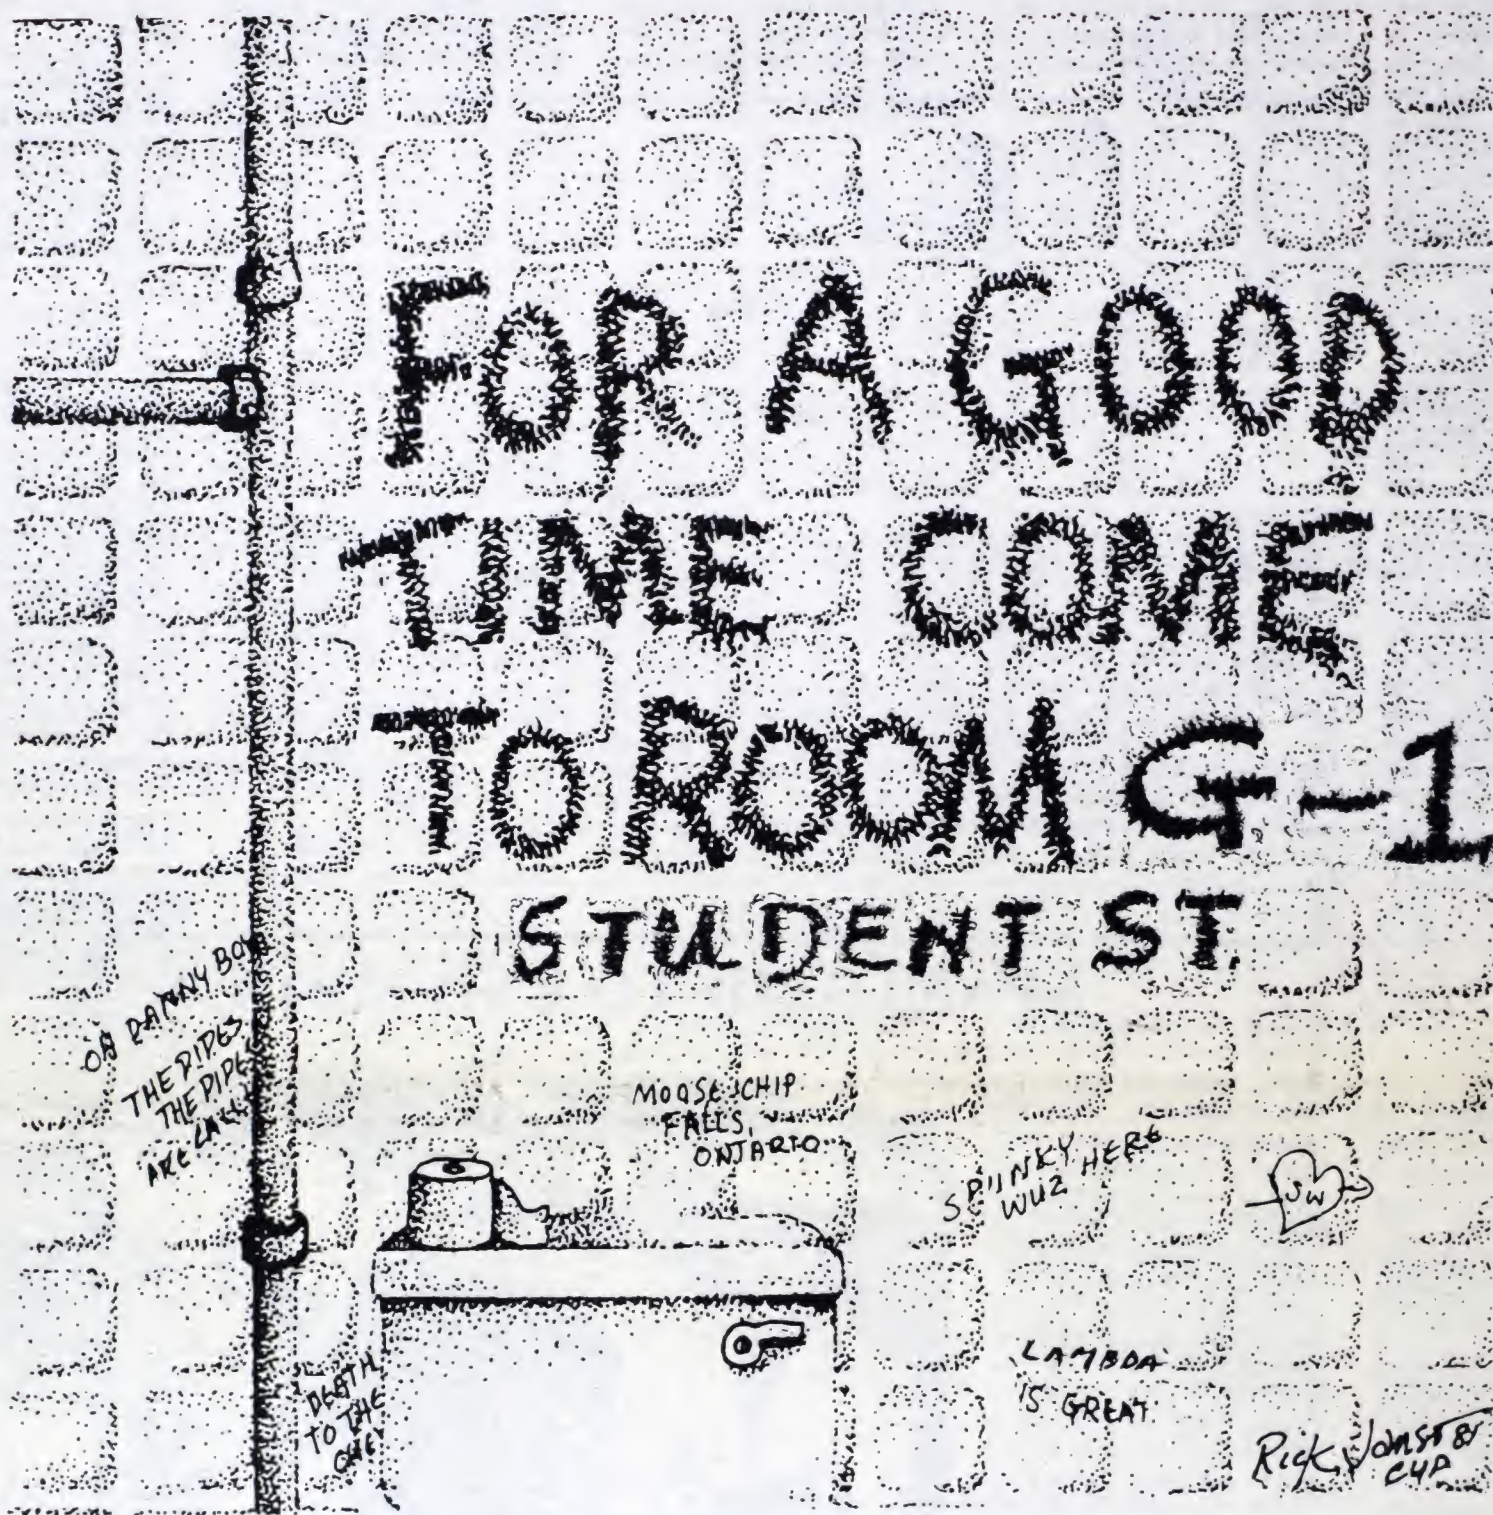 FOR A GOOD
TIME COME
TO ROOM G-1
STUDENT ST.
OH DANNY BOY
THE PIPES
THE PIPES
ARE CALL
MOOSE CHIP
FALLS,
ONTARIO
SPUNKY
WUZ HERE
JW
LAMBDA
IS GREAT
DEATH
TO THE
Rick
CUP